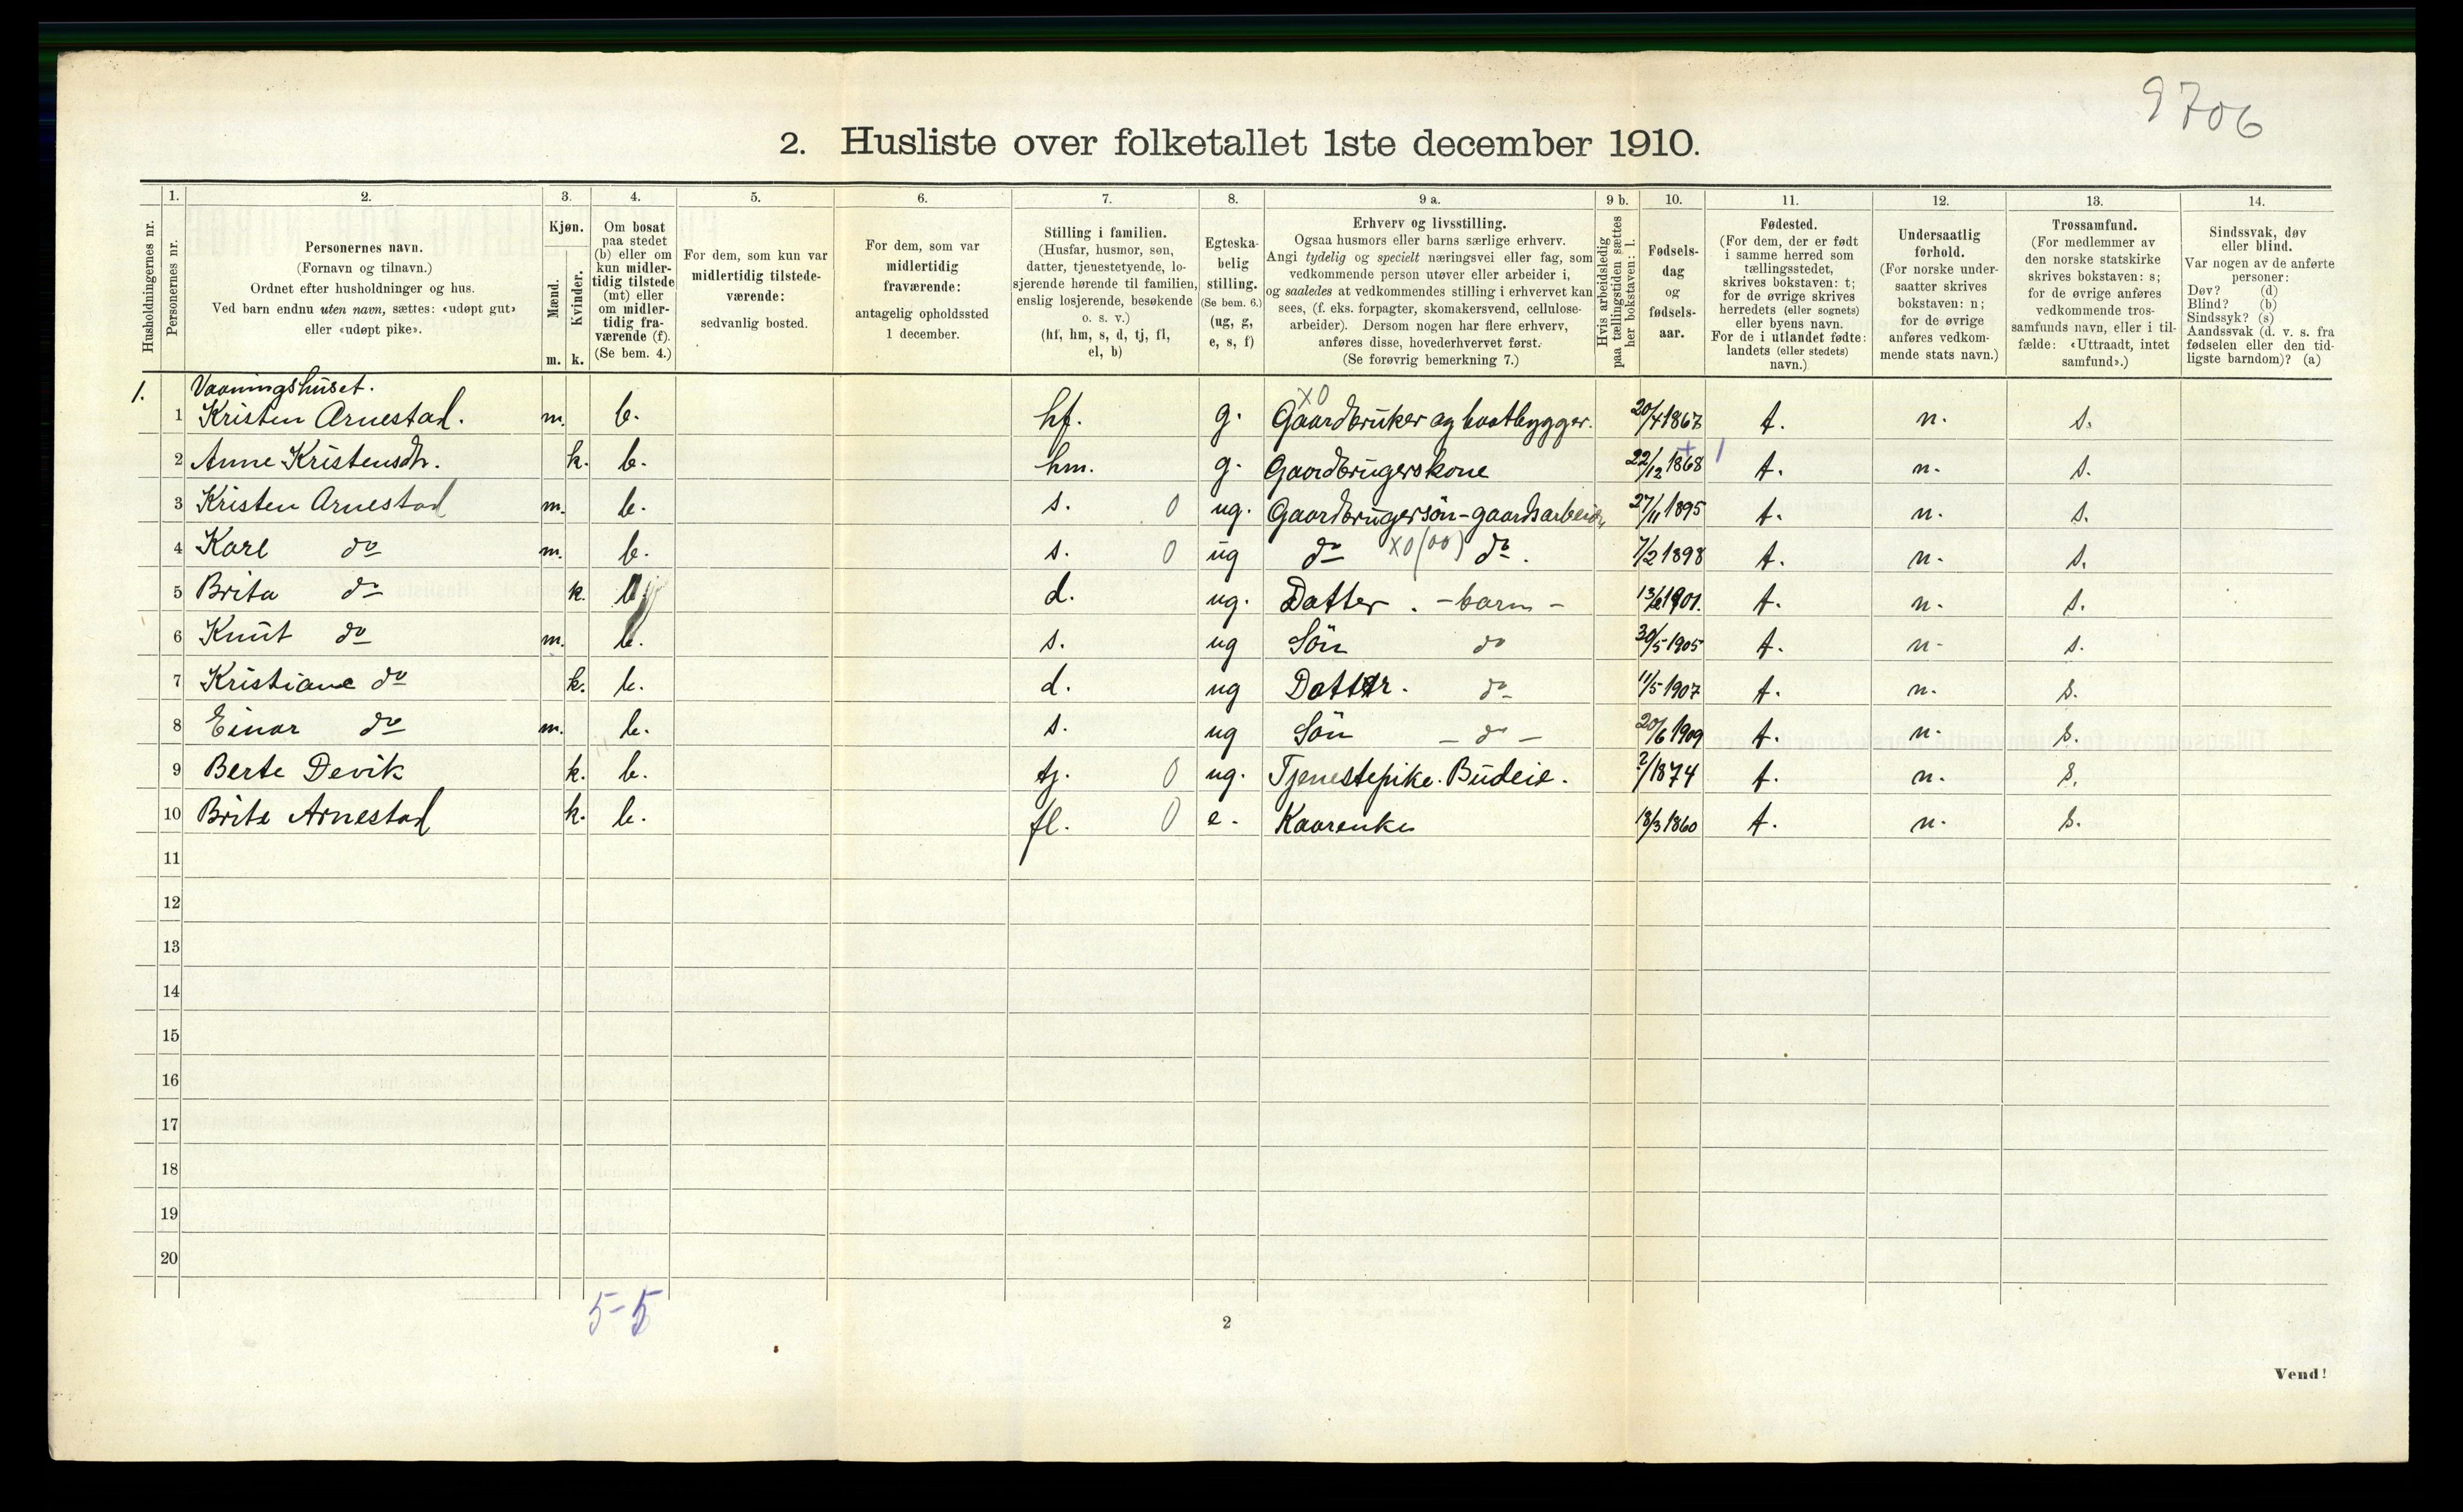 9706
2. Husliste over folketallet 1ste december 1910.
Husholdningernes nr.
1. Personernes nr.
2. Personernes navn.
(Fornavn og tilnavn.)
Ordnet efter husholdninger og hus.
Ved barn endnu uten navn, sættes: «udøpt gut»
eller «udøpt pike».
3. Kjøn.
Mænd. m.
Kvinder. k.
4. Om bosat
paa stedet
(b) eller om
kun midler-
tidig tilstede
(mt) eller
om midler-
tidig fra-
værende (f).
(Se bem. 4.)
5. For dem, som kun var
midlertidig tilstede-
værende:
sedvanlig bosted.
6. For dem, som var
midlertidig
fraværende:
antagelig opholdssted
1 december.
7. Stilling i familien.
(Husfar, husmor, søn,
datter, tjenestetyende, lo-
sjerende hørende til familien,
enslig losjerende, besøkende
o. s. v.)
(hf, hm, s, d, tj, fl,
el, b)
8. Egteska-
belig
stilling.
(Se bem. 6.)
(ug, g,
e, s, f)
9 a. Erhverv og livsstilling.
Ogsaa husmors eller barns særlige erhverv.
Angi tydelig og specielt næringsvei eller fag, som
vedkommende person utøver eller arbeider i,
og saaledes at vedkommendes stilling i erhvervet kan
sees, (f. eks. forpagter, skomakersvend, cellulose-
arbeider). Dersom nogen har flere erhverv,
anføres disse, hovederhvervet først.
(Se forøvrig bemerkning 7.)
9 b. Hvis arbeidsledig
paa tællingstiden sættes
her bokstaven: l.
10. Fødsels-
dag
og
fødsels-
aar.
11. Fødested.
(For dem, der er født
i samme herred som
tællingsstedet,
skrives bokstaven: t;
for de øvrige skrives
herredets (eller sognets)
eller byens navn.
For de i utlandet fødte:
landets (eller stedets)
navn.)
12. Undersaatlig
forhold.
(For norske under-
saatter skrives
bokstaven: n;
for de øvrige
anføres vedkom-
mende stats navn.)
13. Trossamfund.
(For medlemmer av
den norske statskirke
skrives bokstaven: s;
for de øvrige anføres
vedkommende tros-
samfunds navn, eller i til-
fælde: «Uttraadt, intet
samfund».)
14. Sindssvak, døv
eller blind.
Var nogen av de anførte
personer:
Døv? (d)
Blind? (b)
Sindssyk? (s)
Aandssvak (d. v. s. fra
fødselen eller den tid-
ligste barndom)? (a)
1. Vaaningshuset.
X0
1 Kristen Arnestad. m. b. hf. g. Gaardbruker og baatbygger. 20/4 1867 t. n. s.
2 Anne Kristensdtr. k. b. hm. g. Gaardbrugerskone 22/12 1868 t. n. s.
3 Kristen Arnestad m. b. s. 0 ug. Gaardbrugersön-gaardsarbeider 27/11 1895 t. n. s.
4 Karl do m. b. s. 0 ug do X0(00) do. 7/2 1898 t. n. s.
5 Brita do k. b. d. ug. Datter. -barn- 13/6 1901. t. n. s.
6 Knut do m. b. s. ug Sön do 30/5 1905 t. n. s.
7 Kristiane do k. b. d. ug Datter. do 11/5 1907 t. n. s.
8 Einar do m. b. s. ug Sön - do - 20/6 1909 t. n. s.
9 Berte Devik k. b. tj. 0 ug. Tjenestepike. Budeie. ?/1874 t. n. s.
10 Brite Arnestad k. b. fl. 0 e. Kaarenke 18/3 1860 t. n. s.
11
12
13
14
15
16
17
18
19
20
5-5
2
Vend!